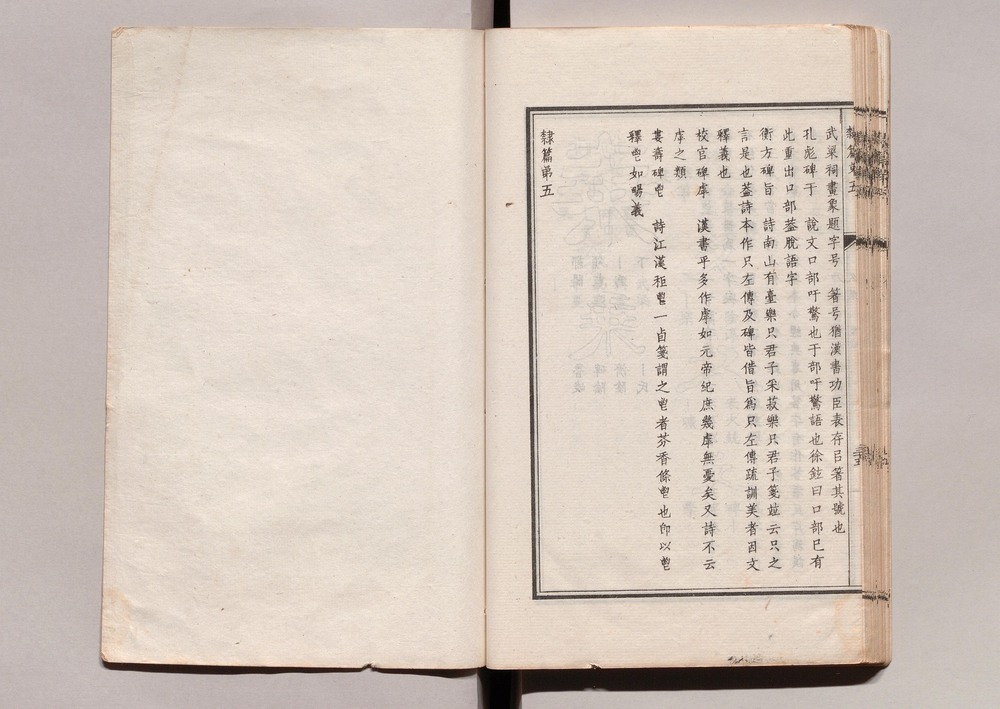 武梁祠畫象題字号　箸号猶漢書功臣表存吕箸其號也
孔彪碑于　說文口部吁驚也于部吁驚語也徐鉉曰口部已有
此重出口部葢脫語字
衡方碑旨　詩南山有臺樂只君子采菽樂只君子箋竝云只之
言是也葢詩本作只左傳及碑皆借旨爲只左傳疏訓美者因文
釋義也
校官碑虖　漢書乎多作虖如元帝紀庶幾虖無憂矣又詩不云
虖之類
婁壽碑鬯　詩江漢秬鬯一卣箋謂之鬯者芬香條鬯也卽以鬯
釋鬯如暘義
隸篇弟五
隸篇弟五